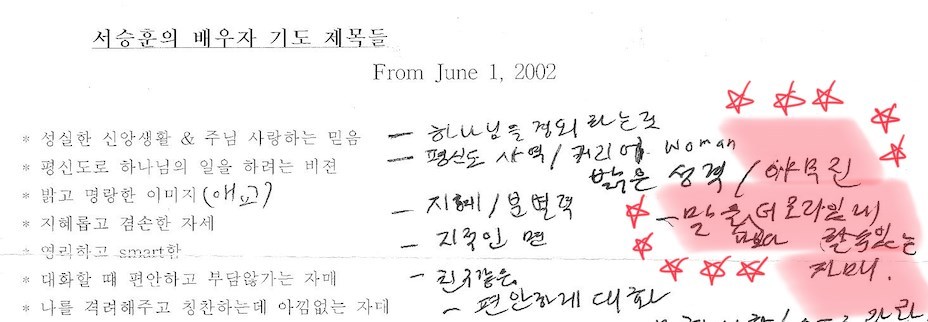 서승훈의 배우자 기도 제목들
From June 1, 2002
* 성실한 신앙생활 & 주님 사랑하는 믿음 - 하나님을 경외하는것
* 평신도로 하나님의 일을 하려는 비젼 - 평신도 사역 / 커리어 woman
* 밝고 명랑한 이미지 (애교) 밝은 성격 / 야무진
* 지혜롭고 겸손한 자세 - 지혜 / 분별력
- 말을
* 영리하고 smart함 - 지적인 면 있는
* 대화할 때 편안하고 부담않가는 자매 - 친구같은 자매.
* 나를 격려해주고 칭찬하는데 아낌없는 자매 - 편안하게 대화